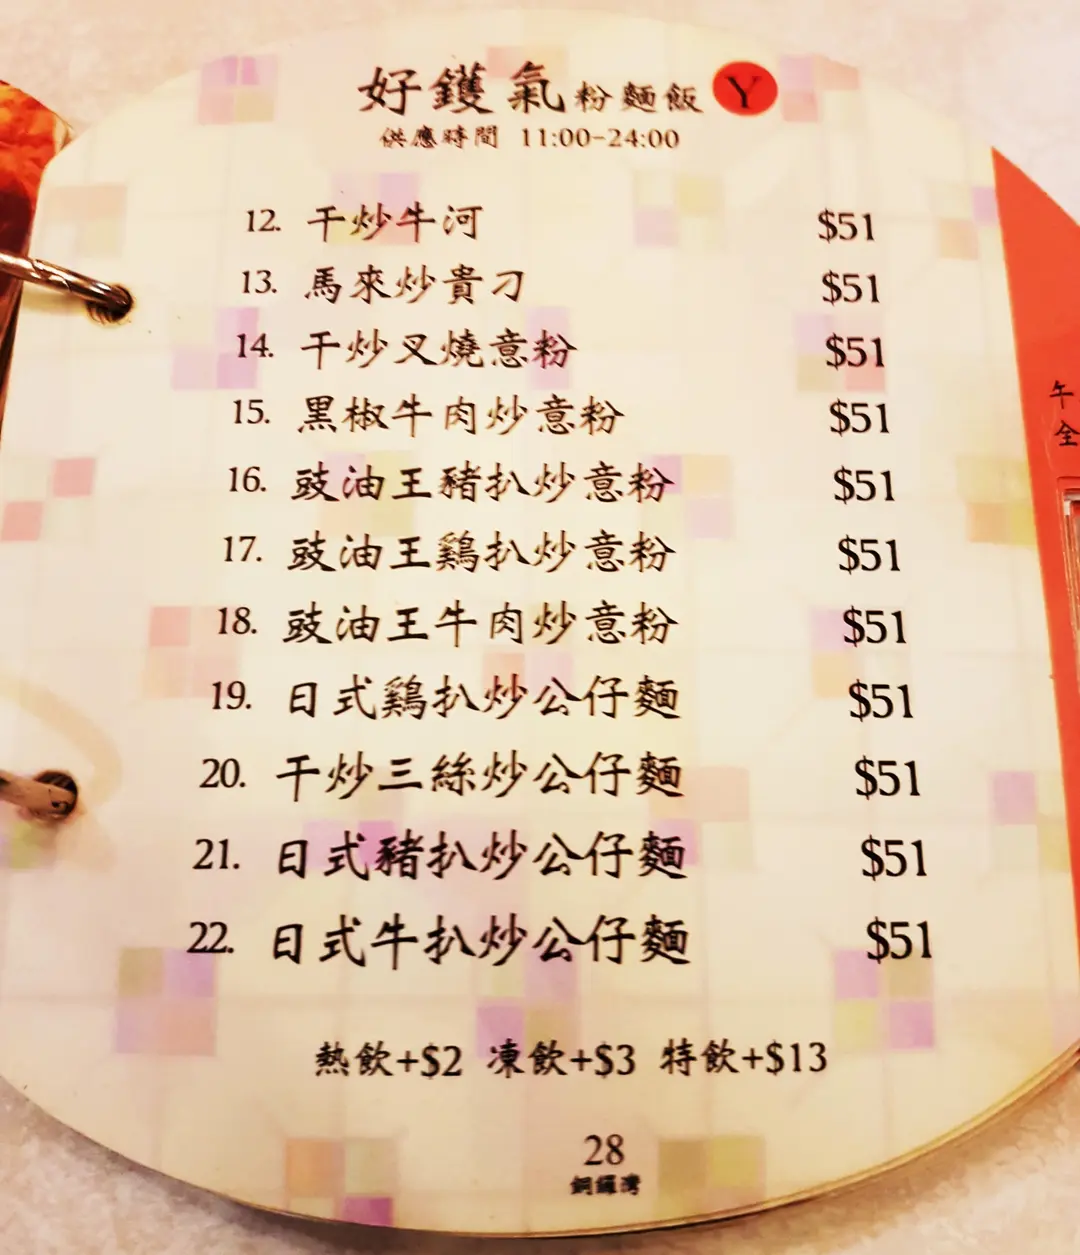 好鑊氣粉麵飯 Y
供應時間 11:00-24:00
12. 干炒牛河 $51
13. 馬來炒貴刁 $51
14. 干炒叉燒意粉 $51
15. 黑椒牛肉炒意粉 $51
16. 豉油王豬扒炒意粉 $51
17. 豉油王鷄扒炒意粉 $51
18. 豉油王牛肉炒意粉 $51
19. 日式鷄扒炒公仔麵 $51
20. 干炒三絲炒公仔麵 $51
21. 日式豬扒炒公仔麵 $51
22. 日式牛扒炒公仔麵 $51
熱飲+$2 凍飲+$3 特飲+$13
28
銅鑼灣
午
全